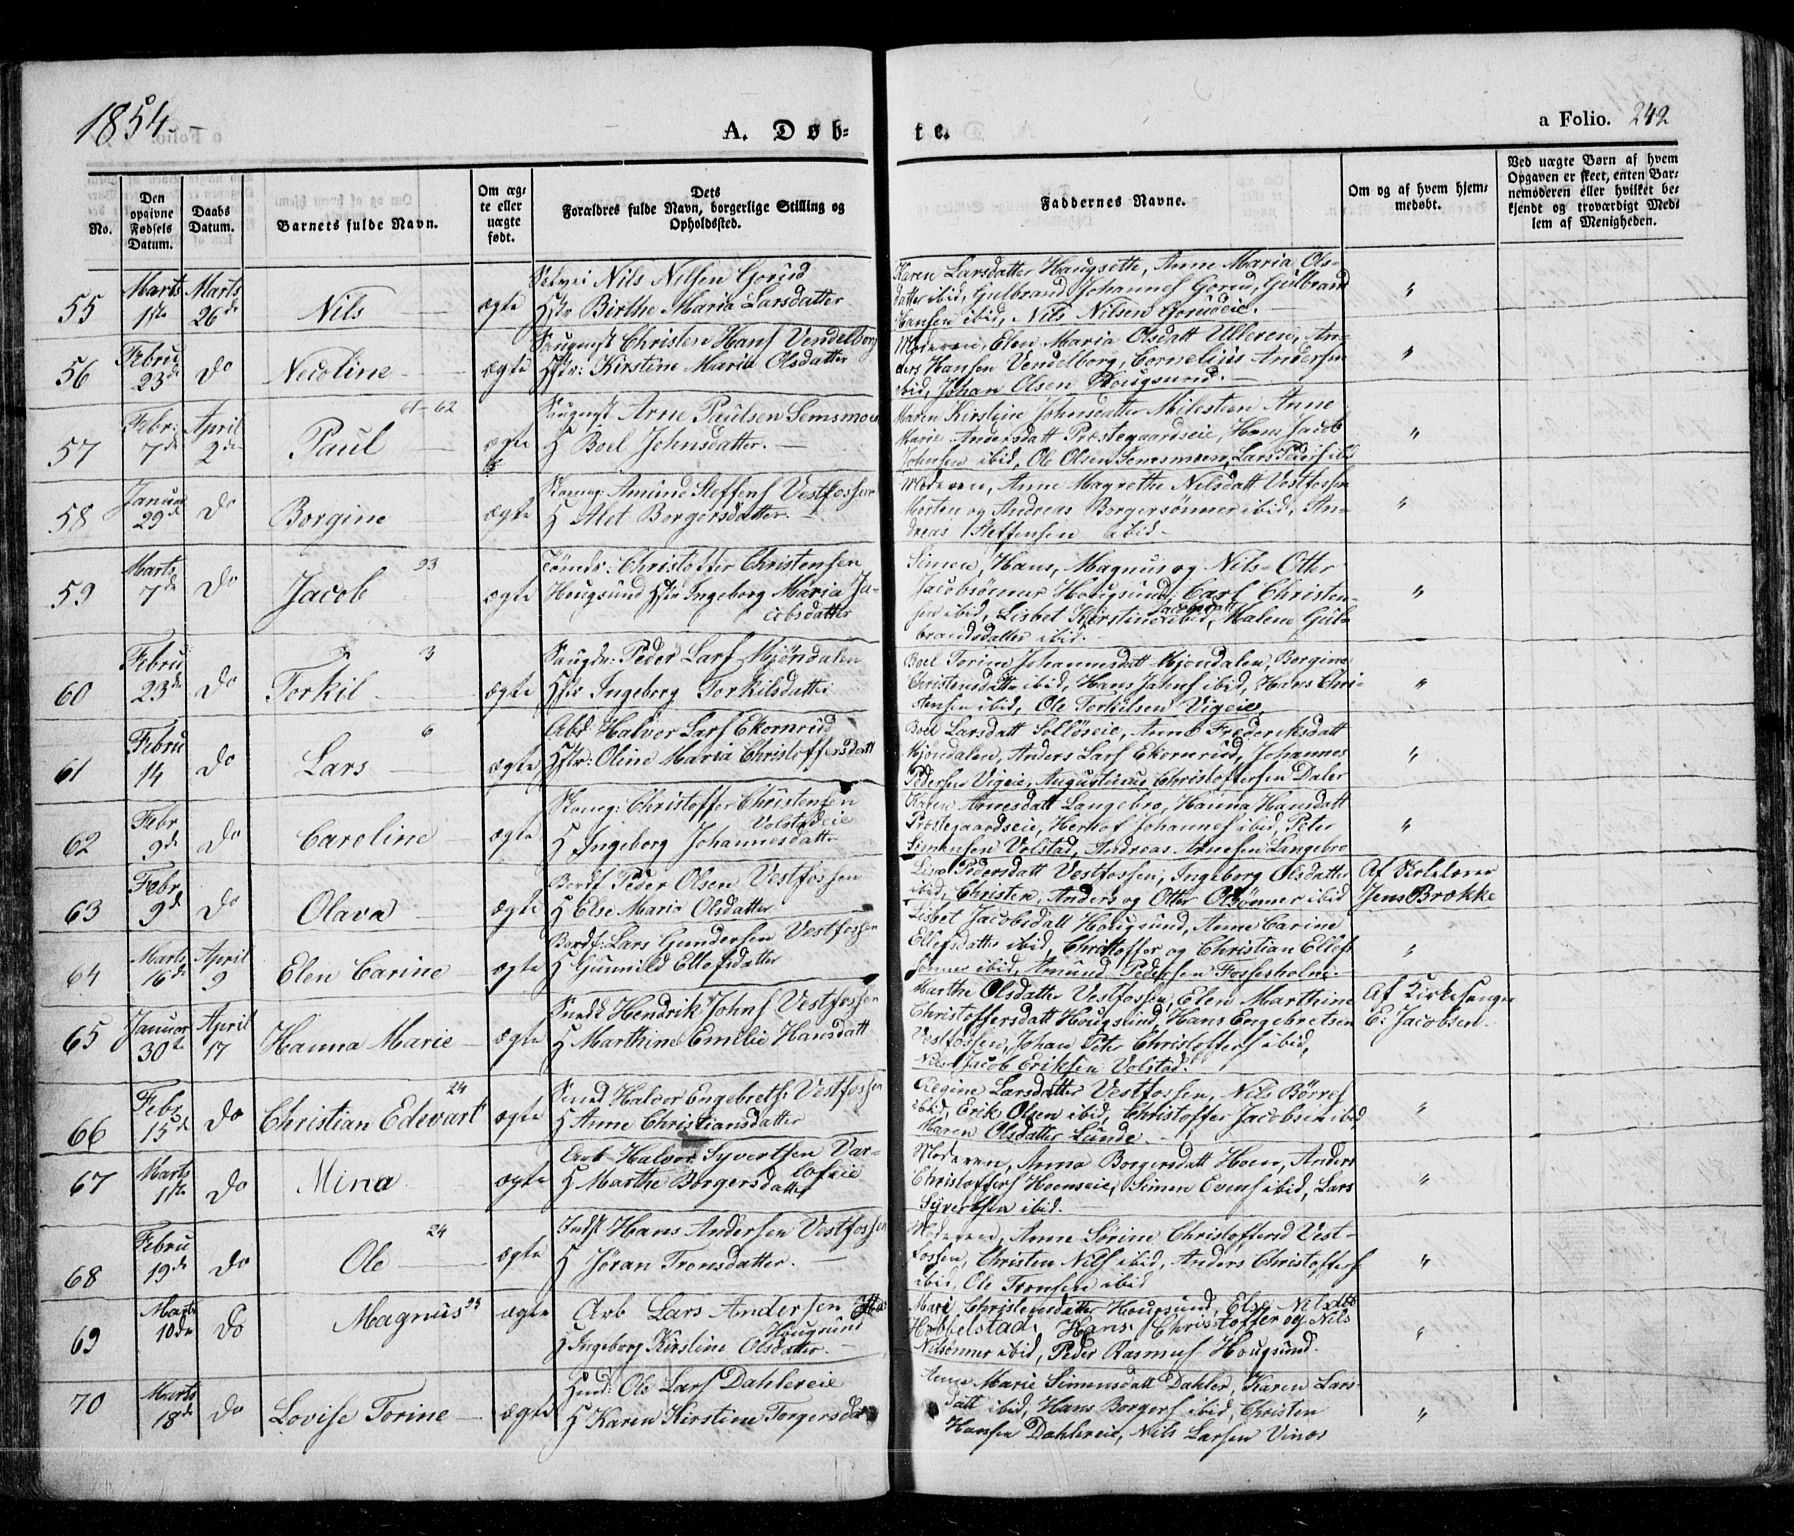 1854.
A. Døb-
te.
a Folio. 242
No.
Den opgivne Fødsels Datum.
Daabs Datum.
Barnets fulde Navn.
Om ægte eller uægte født.
Dets Forældres fulde Navn, borgerlige Stilling og Opholdssted.
Faddernes Navne.
Om og af hvem hjemmedøbt.
Ved uægte Børn af hvem Opgaven er skeet, enten Barnemoderen eller hvilket bekjendt og troværdigt Medlem af Menigheden.
55 Marts 1ste Marts 26de Nils ægte
Nils Nilsen Gorud
Hstr Birthe Maria Larsdatter
Karen Larsdatter Haugseth, Anne Maria Ols-
datter ibid, Gulbrand Johannes Gorud, Gulbrand
Hansen ibid, Nils Nilsen Gorudeie. "
56 Febru 23de do Necoline ægte
Christen Hans Vendelborg
Hstr: Kirstine Maria Olsdatter
Moderen, Elen Maria Olsdatt Ulleren, An-
ders Hansen Vendelborg, Cornelius Andersen
ibid, Johan Olsen Hougsund. "
61-62
57 Febr: 7de April 2den Paul ægte
Arne Paulsen Semsmoen
H Boel Johnsdatter.
Maren Kirstine Johnsdatter Milesteen Anne
Marie Andersdatt Præstegaardseie, Hans Jacob
Johnsen ibid, Ole Olsen Semsmoen, Lars ibid "
58 Januar 29de do Borgine ægte
Amund Steffens Vestfossen
H Alet Borgersdatter.
Moderen, Anne Magrethe Nilsdatt Vestfossen
Morten og Andreas Borgersønner ibid, An-
dreas Steffensen ibid "
59 Marts 7de do Jacob 23 ægte
Christoffer Christensen
Hougsund Hstr Ingeborg Maria Ja-
cobsdatter
Simen, Hans, Magnus og Nils-Otter
Jacobsønner Hougsund, Carl Christen-
sen ibid, Lisbet Kirstine Jacobsdatt ibid, Malene Gul-
brandsdatter ibid. "
60 Febru 23de do Torkil 3 ægte
Peder Lars Mjøndalen
Hstr Ingeborg Torkilsdatter
Boel Torine Johannesdatt Mjøndalen, Borgine
Christensdatter ibid, Hans Jahns ibid, Hans Chri-
stensen ibid, Ole Torkilsen Vigeie. "
61 Febru 14 do Lars 6 ægte
Halvor Lars Ekornrud
Hstr: Oline Maria Christoffersdatt
Boel Larsdatt Solløseie, Anne Frederiksdatt
Mjøndalen, Anders Lars Ekornrud, Johannes
Pedersen Vigeie, Augustinus Christoffersen Daler "
62 Febr 9de do Caroline ægte
Christoffer Christensen
Volstadeie
H Ingeborg Johannesdatter
Karen Arnesdatt Langebro, Hanna Hansdatt
Præstegaardseie, Johannes ibid, Peter
Simensen Volstad, Andreas Arnesen Langebro "
63 Febr 9de do Olava ægte
Peder Olsen Vestfossen
H Else Maria Olsdatter
Lise Pedersdatt Vestfossen, Ingeborg Olsdatter
ibid, Christen, Anders og Otter Olsønner ibid
Af Skolelærer
Jens Brække
64 Marts 16de April 9 Elen Carine ægte
Lars Gundersen Vestfossen
H Gunnild Ellefsdatter
Lisbet Jacobsdatt Hougsund, Anne Carine
Ellefsdatter ibid, Christoffer og Christian Ellef-
sønner ibid, Amund Pedersen Fossesholm. "
65 Januar 30te April 17 Hanna Marie ægte
Hendrik Johns Vestfossen
H Marthine Emilie Hansdatt
Marthe Olsdatter Vestfossen, Elen Marthine
Christoffersdatt Hougsund, Hans Engebretsen
Vestfossen, Johan Peter Christoffers ibid,
Nils Jacob Eriksen Volstad.
Af Kirkesanger
E: Jacobsen.
66 Febr 15de do Christian Edevart 24 ægte
Halvor Engebrets Vestfossen
H Anne Christiansdatter
Regine Larsdatter Vestfossen, Nils Børres
ibid, Erik Olsen ibid, Christoffer Jacobsen ibid
Maren Olsdatter Lunde "
67 Marts 1ste do Mina ægte
Arb Halvor Syvertsen Var-
loeie
H Marthe Borgersdatter
Moderen, Anna Borgersdatt Hoen, Anders
Christoffers Hoenseie, Simen Evens ibid, Lars
Syvertsen ibid. "
68 Febru 19de do Ole 24 ægte
Hans Andersen Vestfossen
H Jøran Tronsdatter.
Moderen, Anne Sørine Christoffersd Vest-
fossen, Christen Nils ibid, Anders Christoffers
ibid, Ole Tronsen ibid "
69 Marts 10de do Magnus 23 ægte
Arb Lars Andersen
Hougsund
H Ingeborg Kirstine Olsdatter.
Mari Christensdatter Hougsund, Else Nilsdtr
Hobbelstad, Hans, Christoffer og Nils
Nilsønner ibid, Peder Rasmus Hougsund. "
70 Marts 18de do Lovise Torine ægte
Ole Lars Dahlereie
H Karen Kirstine Torgersdatter
Anne Marie Simensdatt Dahler, Karen Lars-
datt ibid, Hans Borgers ibid, Christen
Hansen Dahlereie, Nils Larsen "